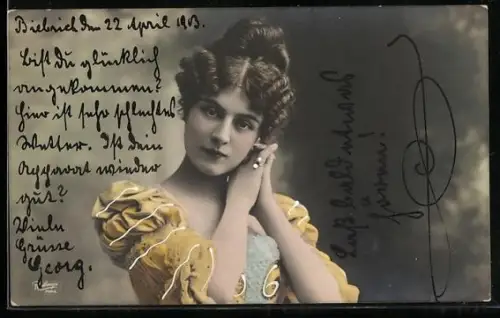 Biebrich den 22 April 1903.
Bist Du glücklich
angekommen?
Hier ist sehr schlechtes
Wetter. Ist dein
Apparat wieder
gut?
Viele
Grüsse
Georg.
Laß bald etwas
hören!